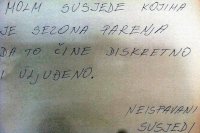 MOLM SUSJEDE KOJIMA
JE SEZONA PARENJA
DA TO ČINE DISKRETNO
I ULJUĐENO.
NEISPAVANI
SUSJEDI